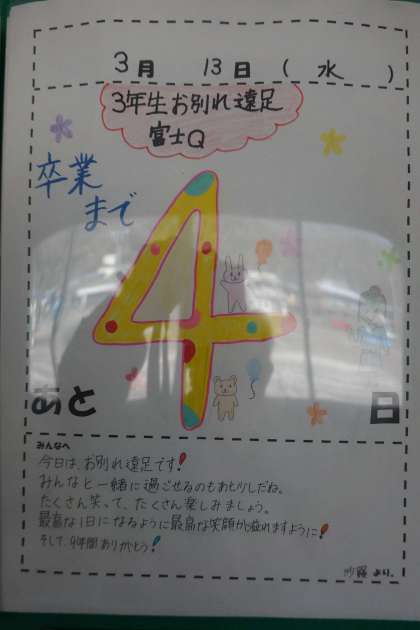 3月 13日 ( 水 )
3年生お別れ遠足
富士Q
卒業
まで
4
あと 日
みんなへ
今日は、お別れ遠足です!
みんなと一緒に過ごせるのもあと少しだね。
たくさん笑って、たくさん楽しみましょう。
最高な1日になるように最高な笑顔が溢れますように!
そして、9年間ありがとう!
沙羅 より。